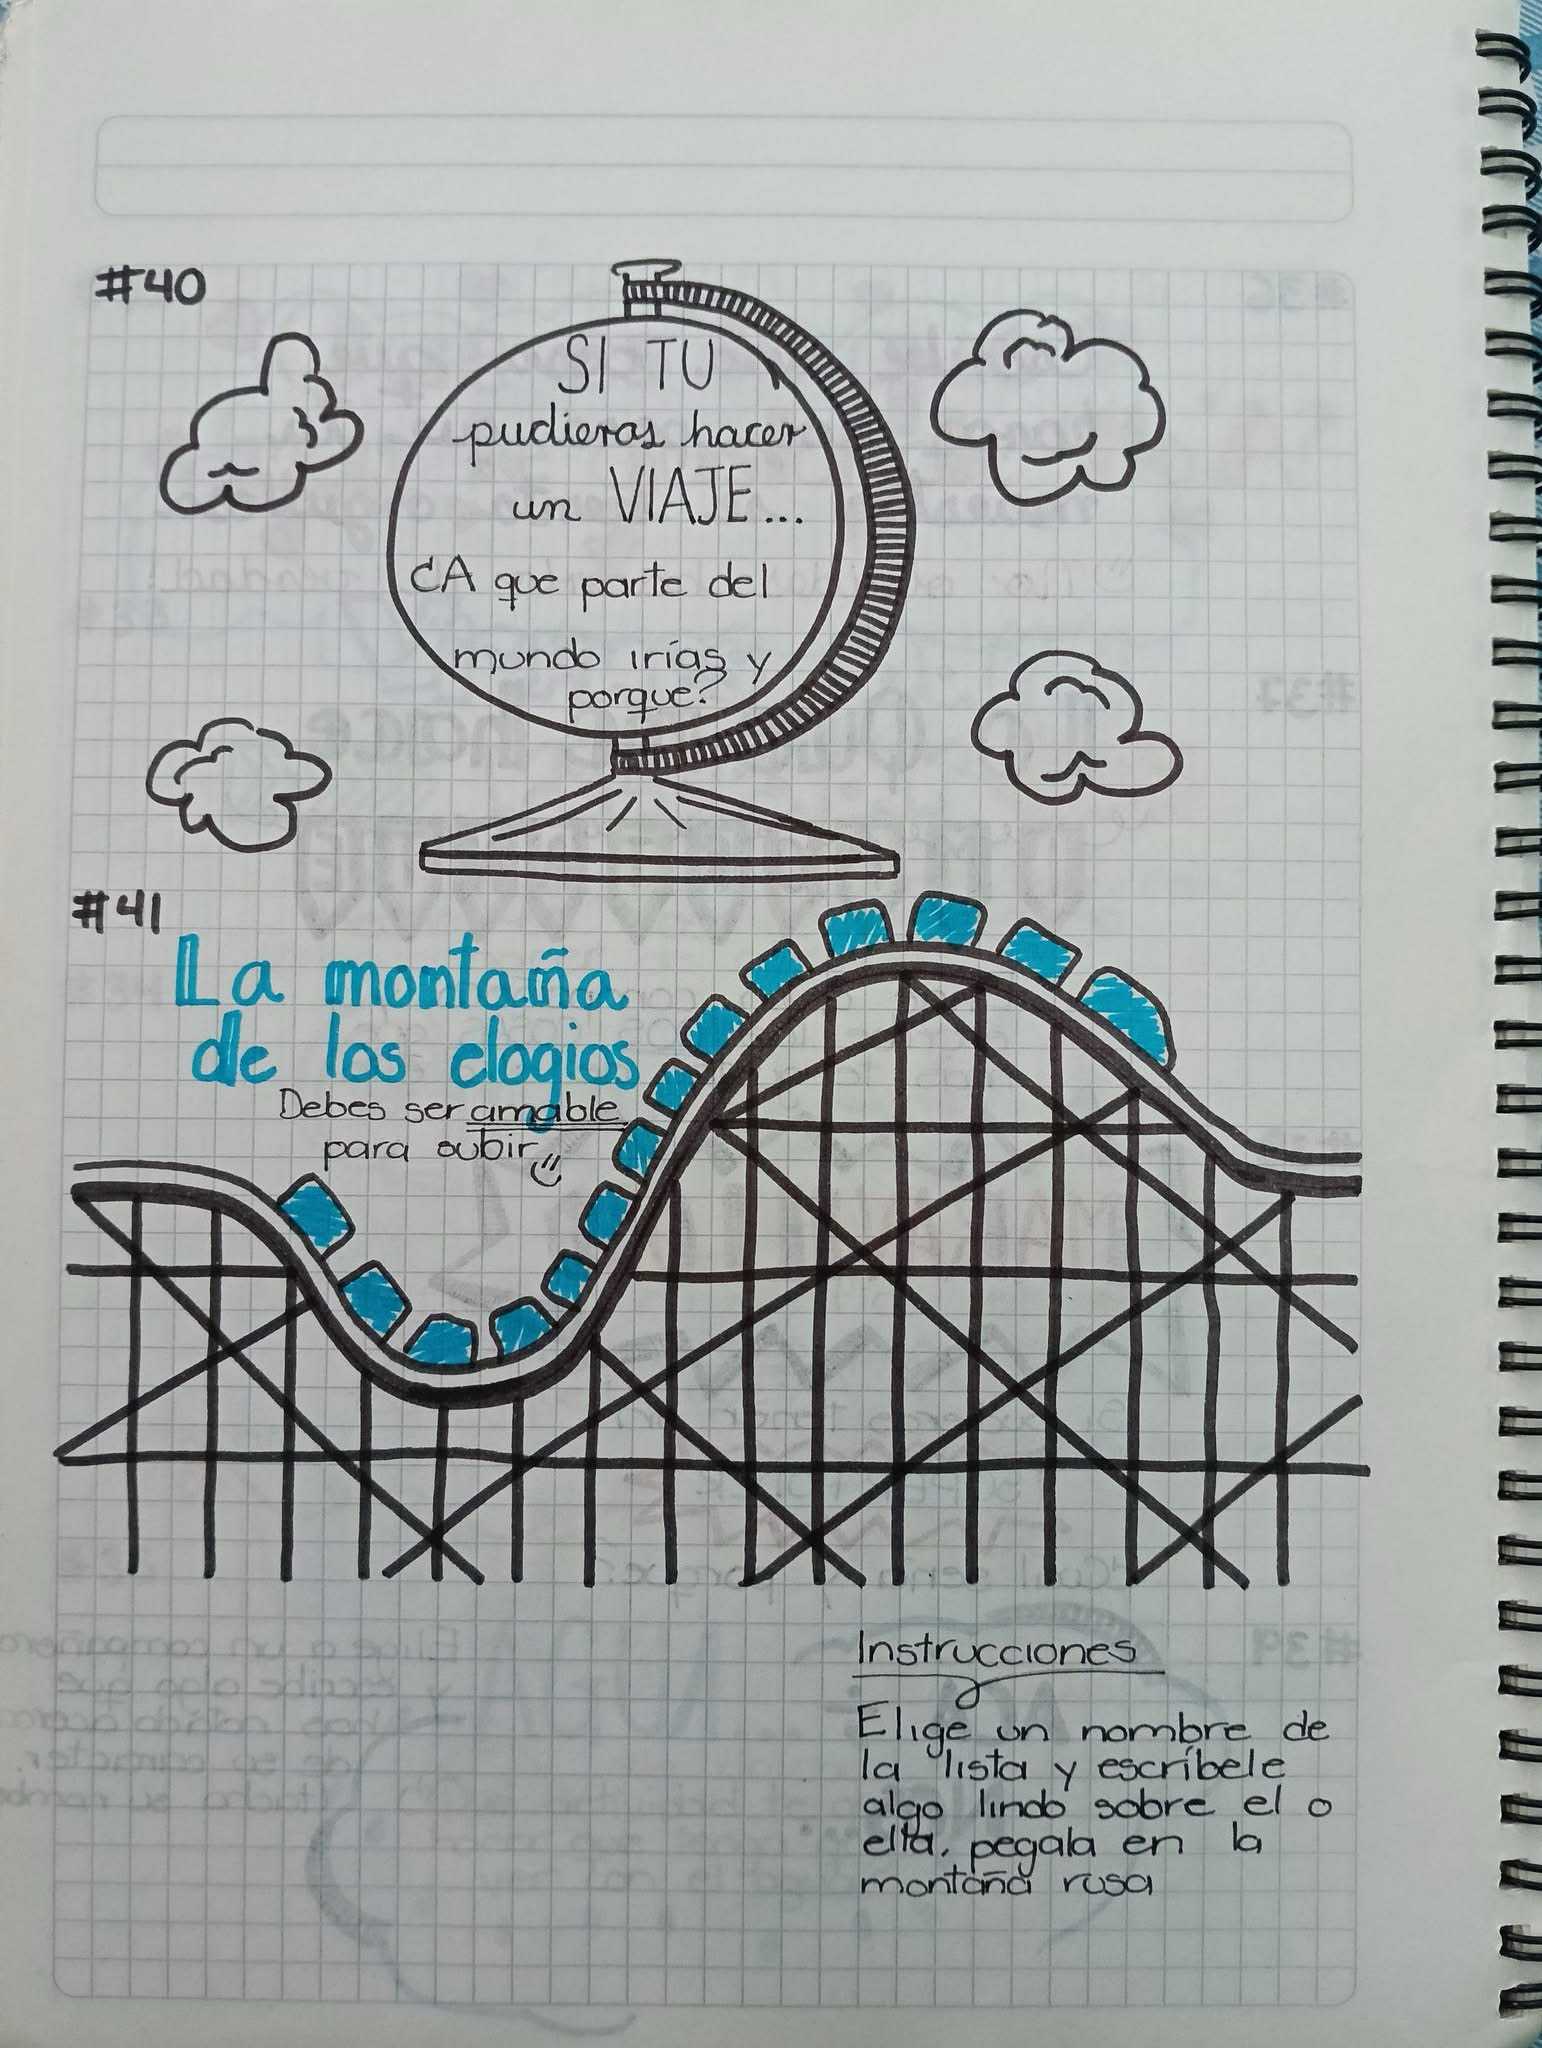 #40
SI TU
pudieras hacer
un VIAJE...
¿A que parte del
mundo irías y
porque?
#41
La montaña
de los elogios
Debes ser amable
para subir
Instrucciones
Elige un nombre de
la lista y escríbele
algo lindo sobre el o
ella, pegala en la
montaña rusa